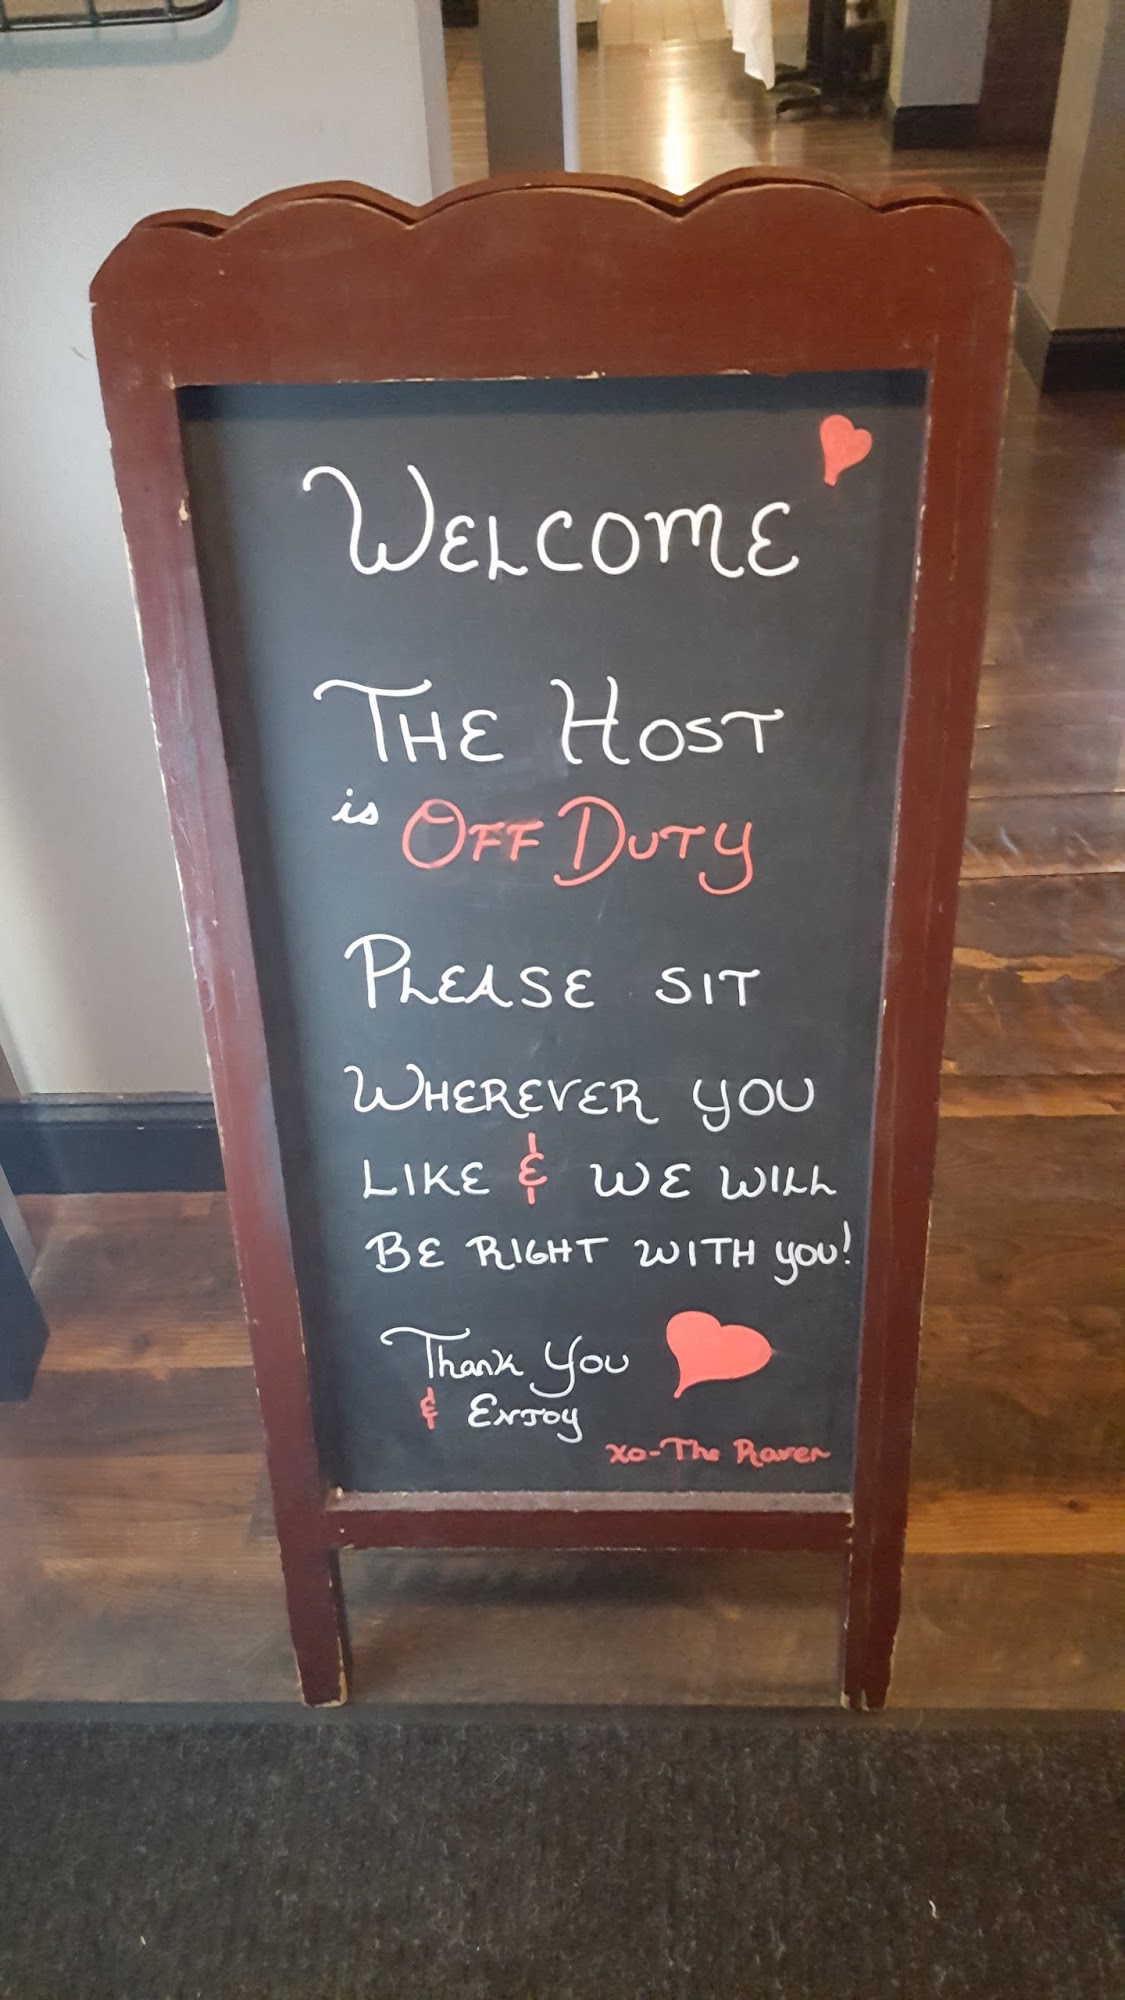 WELCOME
THE HOST
is OFF DUTY
PLEASE SIT
WHEREVER YOU
LIKE & WE WILL
BE RIGHT WITH YOU!
Thank You
& ENJOY
xo-The Raven